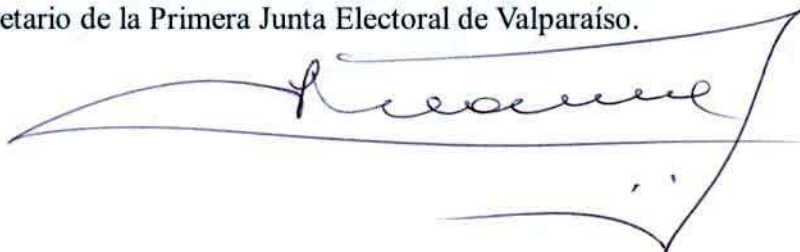 etario de la Primera Junta Electoral de Valparaíso.